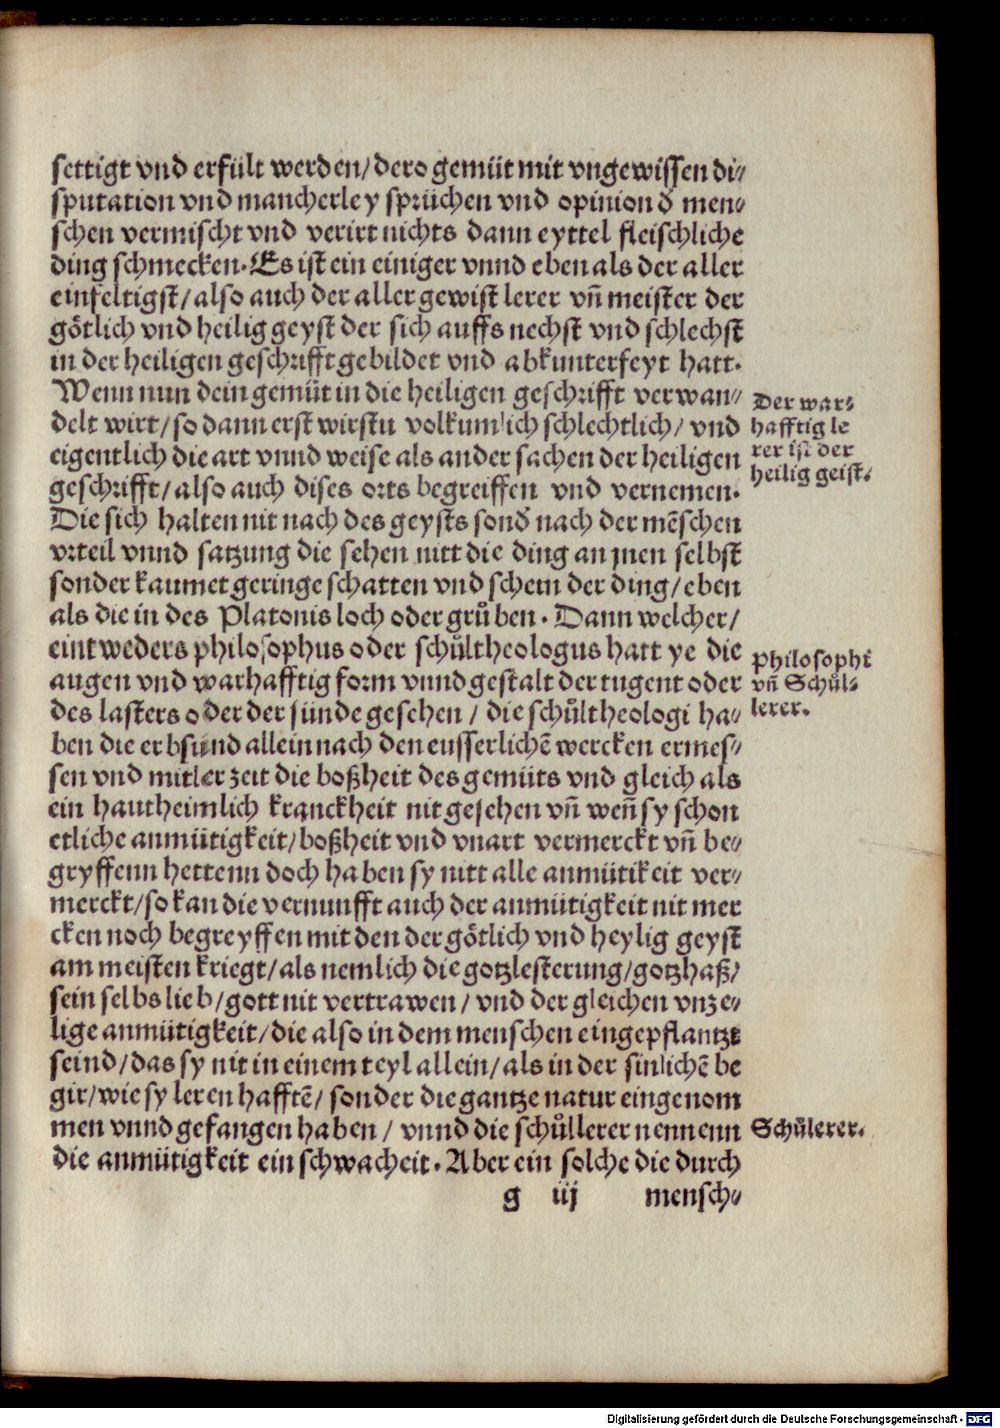 settigt vnd erfült werden/dero gemüt mit vngewissen di⸗
sputation vnd mancherley sprüchen vnd opinion d̕ men⸗
schen vermischt vnd verirt nichts dann eyttel fleischliche
ding schmecken. Es ist ein einiger vnnd eben als der aller
einfeltigst/also auch der aller gewist lerer vñ meister der
götlich vnd heilig geyst der sich auffs nechst vnd schlechst
in der heiligen geschrifft gebildet vnd abkunterfeyt hatt.
Wenn nun dein gemüt in die heiligen geschrifft verwan⸗
delt wirt/so dann erst wirstu volkumlich schlechtlich/ vnd
eigentlich die art vnnd weise als ander sachen der heiligen
geschrifft/also auch dises orts begreiffen vnd vernemen.
Der war⸗
hafftig le
rer ist der
heilig geist.
Die sich halten nit nach des geysts sond̕ nach der mēschen
vrteil vnnd satzung die sehen nitt die ding an jnen selbst
sonder kaumet geringe schatten vnd schein der ding/eben
als die in des Platonis loch oder grůben. Dann welcher/
eintweders philosophus oder schůltheologus hatt ye die
augen vnd warhafftig form vnnd gestalt der tugent oder
des lasters oder der sünde gesehen / die schůltheologi ha⸗
ben die erbsund allein nach den eusserlichē wercken ermes⸗
Philosophi
vñ Schůl⸗
lerer.
sen vnd mitler zeit die boßheit des gemüts vnd gleich als
ein hautheimlich kranckheit nit gesehen vñ weñ sy schon
etliche anmütigkeit/boßheit vnd vnart vermerckt vñ be⸗
gryffenn hettenn doch haben sy nitt alle anmütikeit ver⸗
merckt/so kan die vernunfft auch der anmütigkeit nit mer
cken noch begreyffen mit den der götlich vnd heylig geyst
am meisten kriegt/als nemlich die gotzlesterung/gotzhaß/
sein selbs lieb/gott nit vertrawen/ vnd der gleichen vnze⸗
lige anmütigkeit/die also in dem menschen eingepflantzt
seind/das sy nit in einem teyl allein/als in der sinlichē be
gir/wie sy leren hafftē/ sonder die gantze natur eingenom
men vnnd gefangen haben / vnnd die schůllerer nennenn
die anmütigkeit ein schwacheit. Aber ein solche die durch
Schůlerer.
g iij mensch⸗
Digitalisierung gefördert durch die Deutsche Forschungsgemeinschaft - DFG